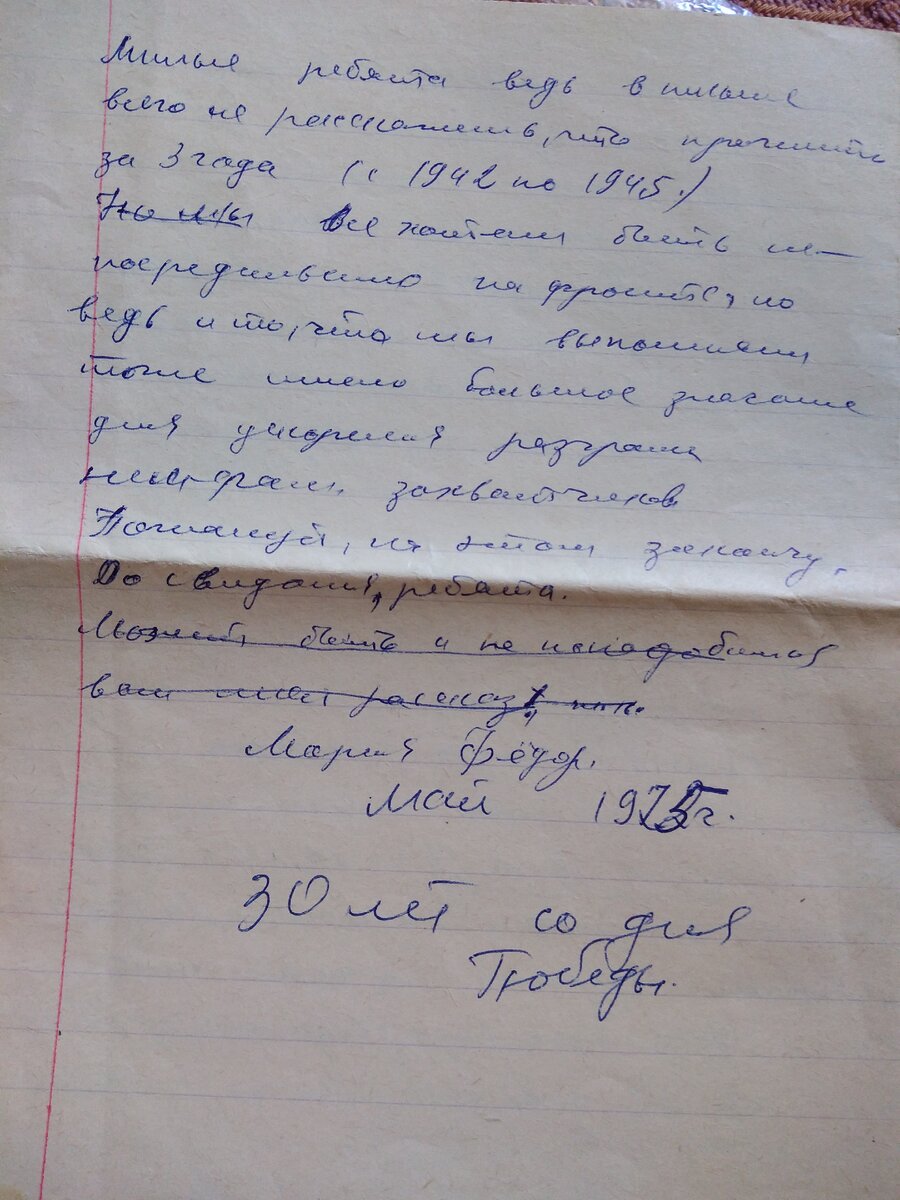 Милые ребята ведь в письме
всего не расскажешь, что прожито
за 3 года (с 1942 по 1945.)
Но мы Все хотели быть не-
посредственно на фронте, но
ведь и то, что мы выполняли
тоже имело большое значение
для ускорения разгрома
нем-фаш. захватчиков
Пожалуй, на этом закончу.
До свидания, ребята.
Может быть и не понадобится
вам мой рассказ,
Мария Фёдор.
Май 1975г.
30 лет со дня
Победы.